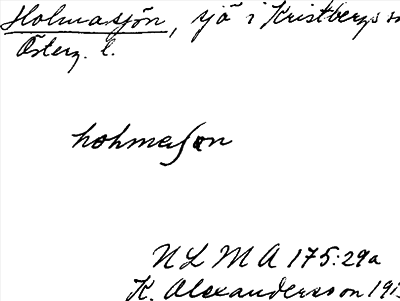 Holmasjön, sjö i Kristbergs sn
Österg. l.
holmasɷn
N L M A 175:29a
K. Alexandersson 191